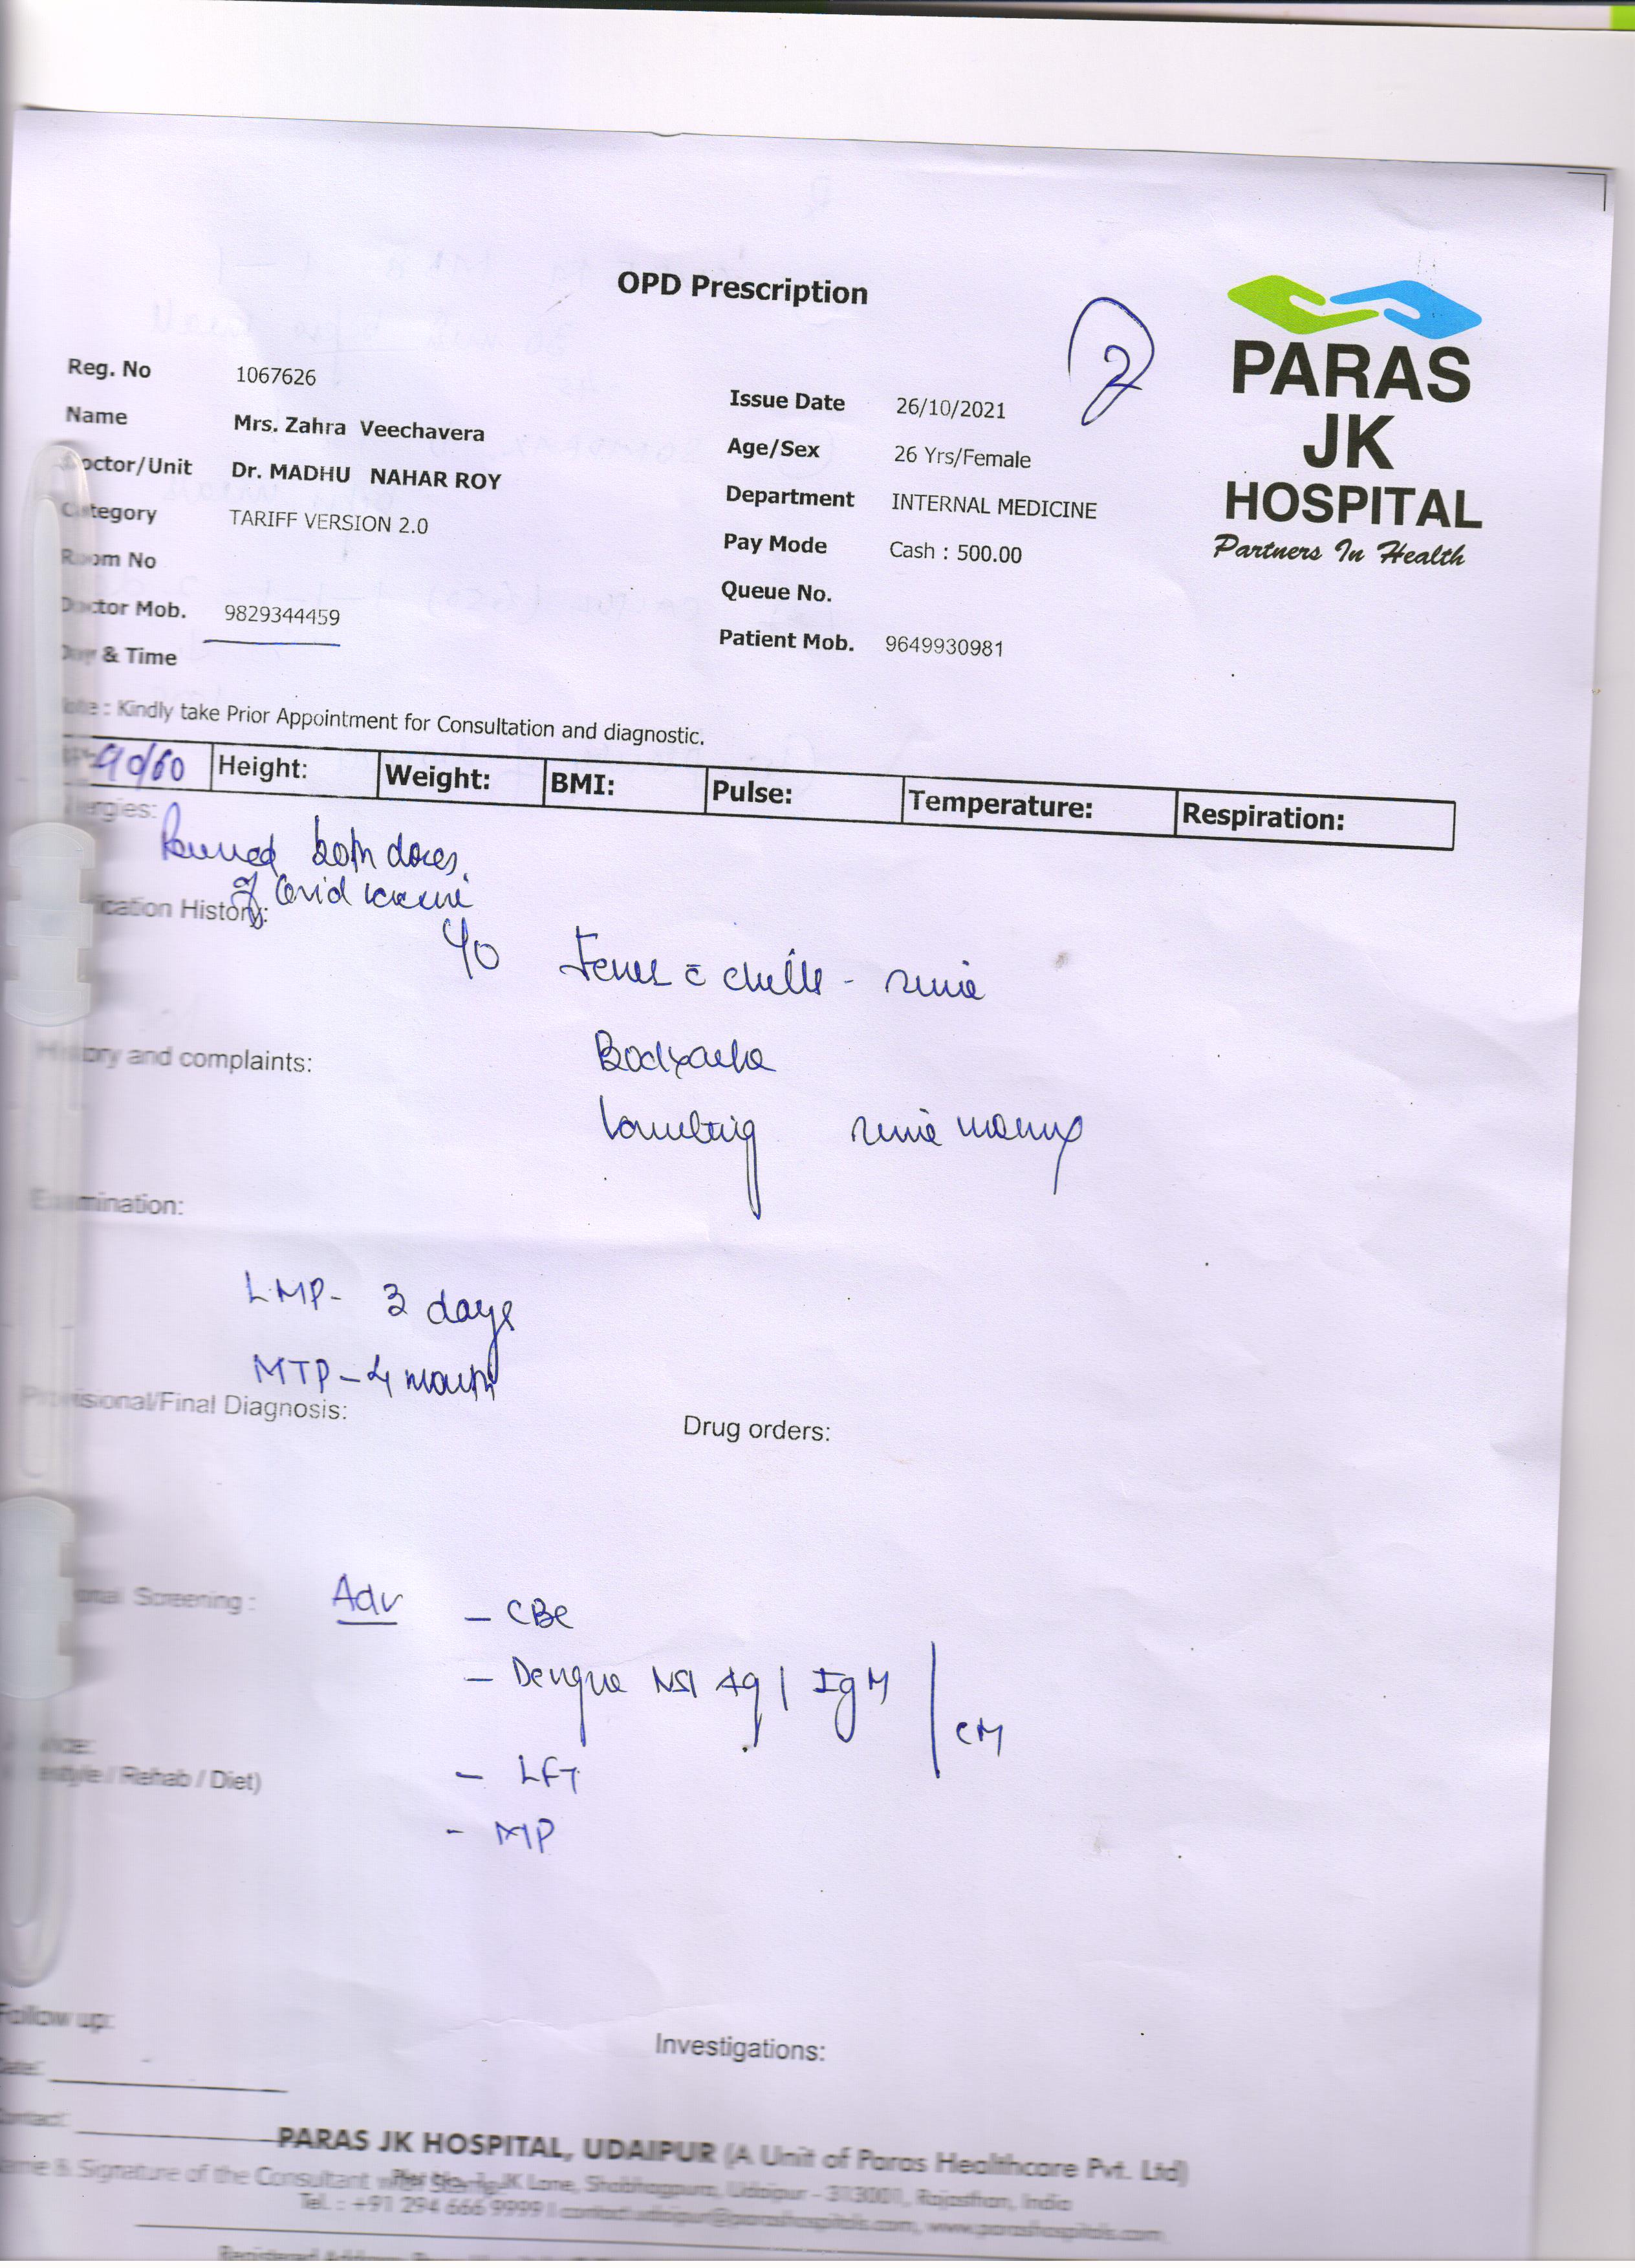 OPD Prescription
PARAS
JK
HOSPITAL
Partners In Health
Reg. No 1067626
Name Mrs. Zahra Veechavera
Doctor/Unit Dr. MADHU NAHAR ROY
Category TARIFF VERSION 2.0
Room No
Doctor Mob. 9829344459
Day & Time
Issue Date 26/10/2021
Age/Sex 26 Yrs/Female
Department INTERNAL MEDICINE
Pay Mode Cash : 500.00
Queue No.
Patient Mob. 9649930981
Note : Kindly take Prior Appointment for Consultation and diagnostic.
90/60 Height: Weight: BMI: Pulse: Temperature: Respiration:
both doses
of Covid vaccine
History:
C/o Fever c̄ chills - since
History and complaints:
Bodyache
Vomiting since morning
Examination:
LMP - 3 days
MTP - 4 month
Provisional/Final Diagnosis:
Drug orders:
Screening :
Adv - CBC
- Dengue NS1 Ag | IgM
CM
/ Rehab / Diet)
- LFT
- MP
Follow up:
Investigations:
Date:
Contact:
PARAS JK HOSPITAL, UDAIPUR (A Unit of Paras Healthcare Pvt. Ltd)
Name & Signature of the Consultant with
JK Lane, Shobhagpura, Udaipur - 313001, Rajasthan, India
Tel. : +91 294 666 9999 | contact.udaipur@parashospitals.com, www.parashospitals.com